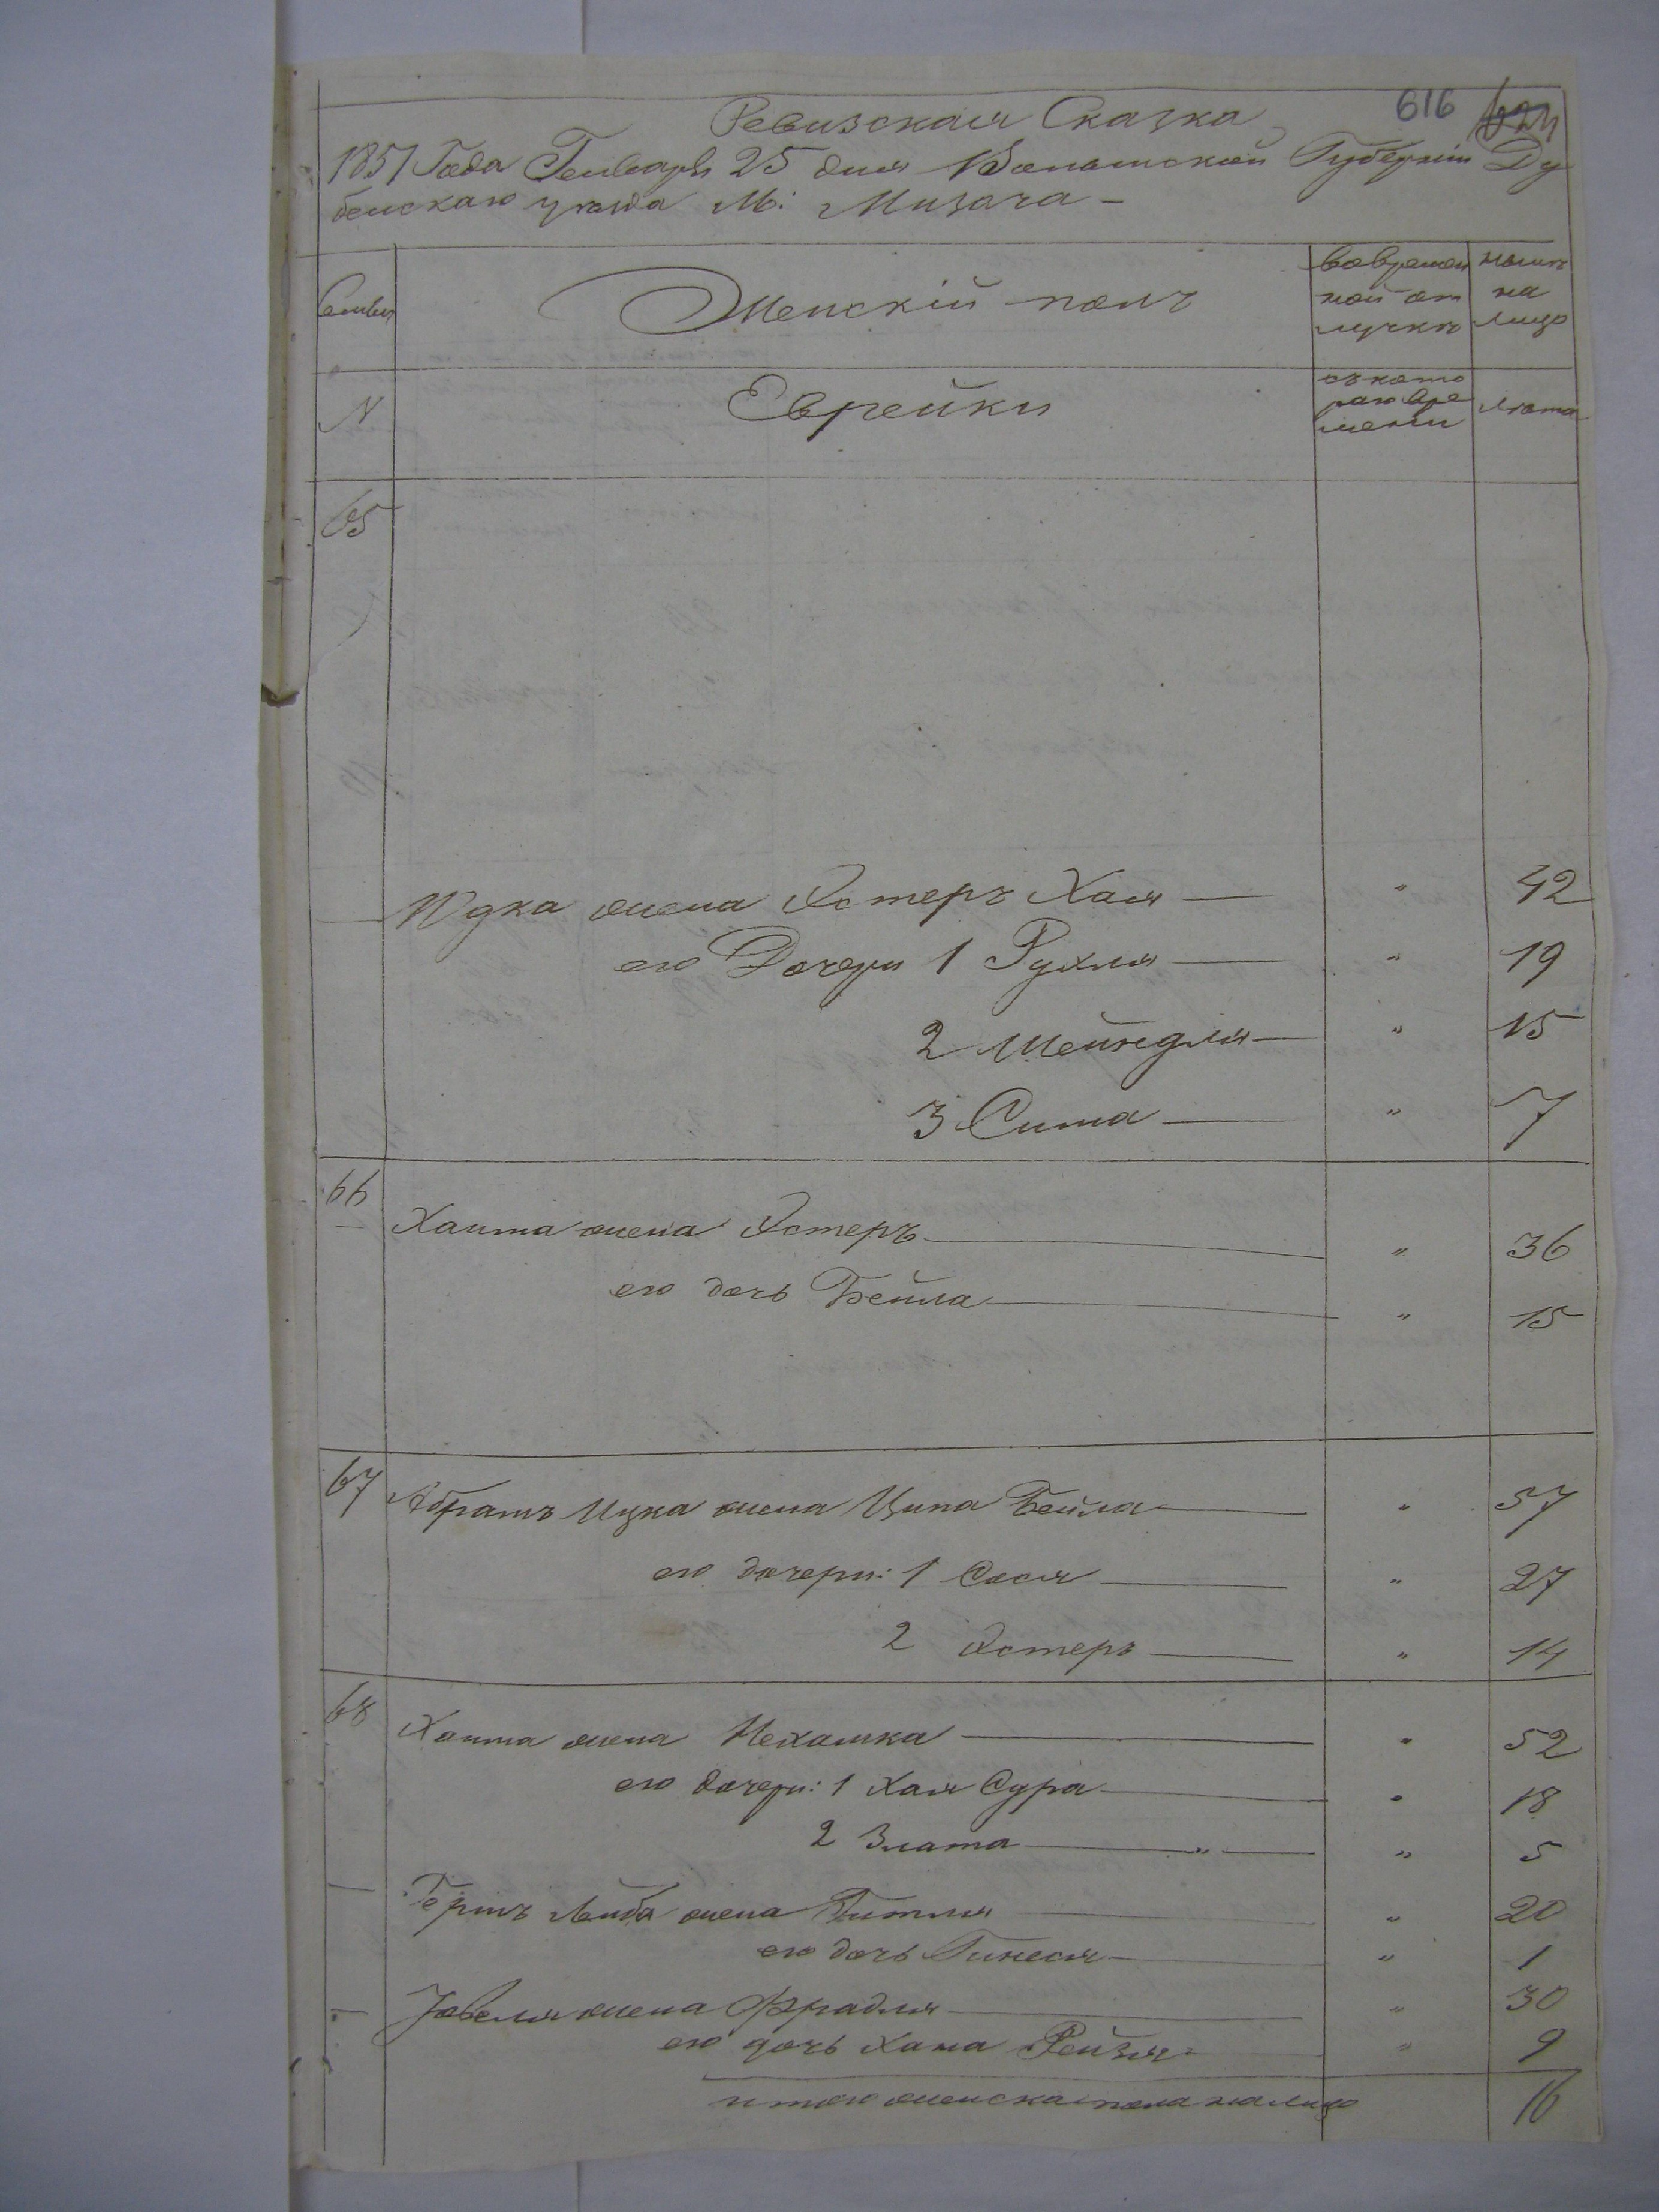 616 624
Ревизская Сказка
1851 Года Генваря 25 дня Волынской Губерніи Ду
бенскаго уезда М: Мизоча —
Семьи
Женскій полъ
во времен
ной от
лучкѣ
нынѣ
на
лицо
N
Еврейки
съ кото
раго вре
мени
лѣта
65
Идка жена Эстеръ Хая — " 42
его Дочери 1 Рухля — " 19
2 Шейндля — " 15
3 Сима — " 7
66
Хаима жена Эстеръ — " 36
его дочь Бейла — " 15
67
Абрамъ Ицка жена Ципа Бейла — " 57
его дочери: 1 Сося — " 27
2 Эстеръ — " 14
68
Хаима жена Нехамка — " 52
его дочери: 1 Хая Сура — " 18
2 Злата — " — " 5
Гершъ Лейба жена Гитля — " 20
его дочь Гинеся — " 1
Іовеля жена Фрадля — " 30
его дочь Хана Рейзя — " 9
итого женска пола налицо 16